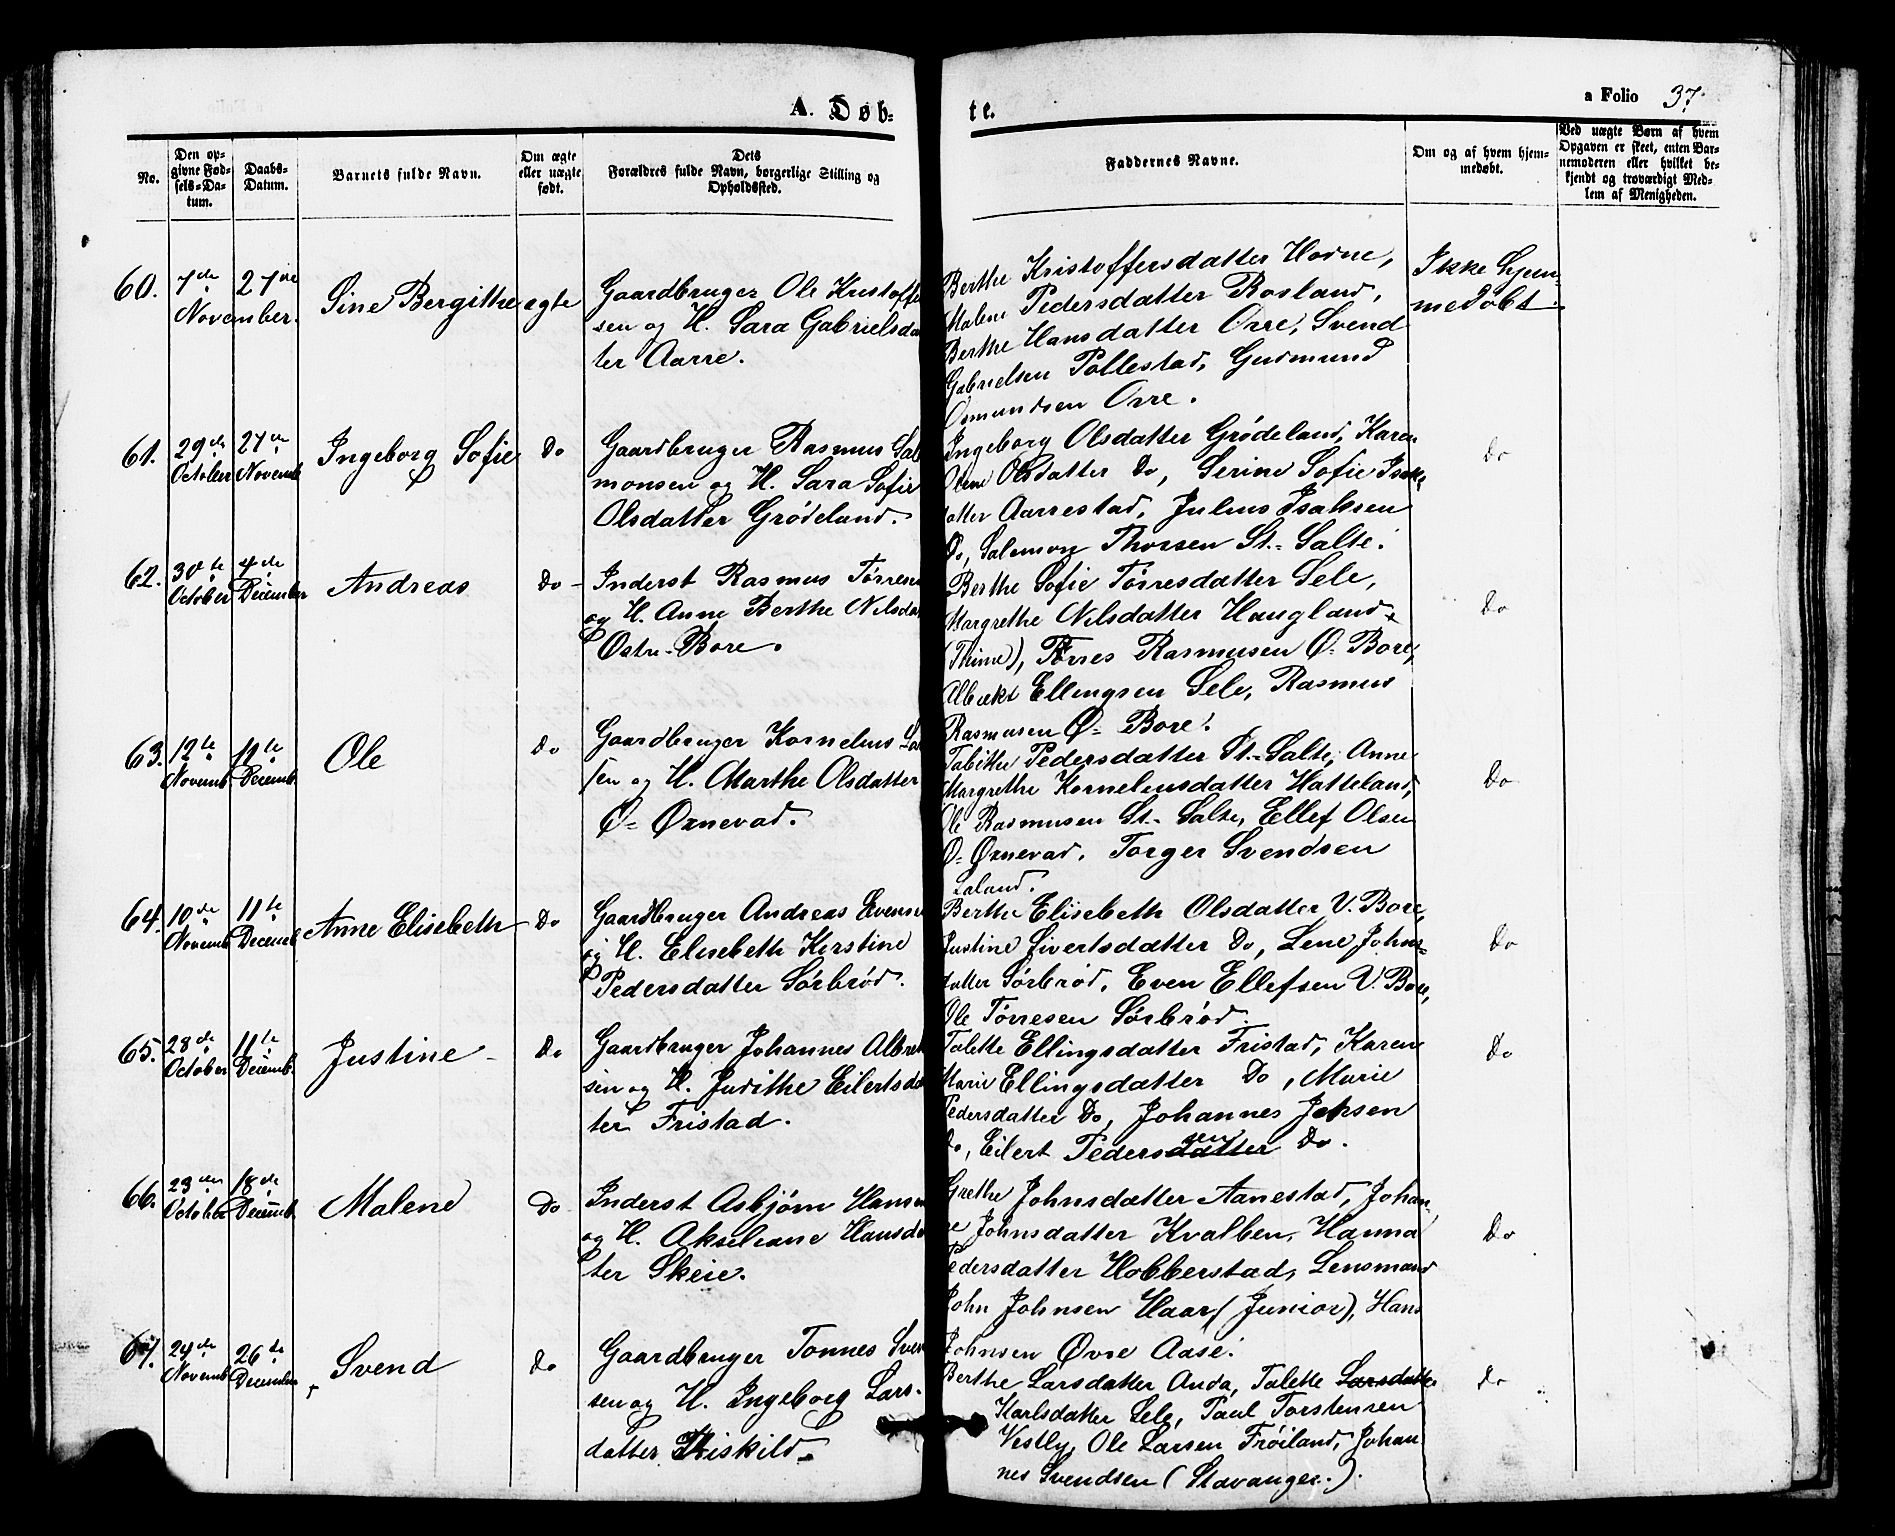 A. Døb-
te.
a Folio 37.
No.
Den op-
givne Fød-
sels-Da-
tum.
Daabs-
Datum.
Barnets fulde Navn.
Om ægte
eller uægte
født.
Dets
Forældres fulde Navn, borgerlige Stilling og
Opholdssted.
Faddernes Navne.
Om og af hvem hjem-
medøbt.
Ved uægte Børn af hvem
Opgaven er skeet, enten Bar-
nemoderen eller hvilket be-
kjendt og troværdigt Med-
lem af Menigheden.
60.
7de
November.
27de
Sine Bergithe
ægte
Gaardbruger Ole Kristoffer
sen og H. Sara Gabrielsdat
ter Aarre.
Berthe Kristoffersdatter Horne,
Malene Pedersdatter Rosland,
Berthe Hansdatter Orre, Svend
Gabrielsen Pollestad, Gudmund
Osmundsen Orre.
Ikke hjem-
medøbt.
61.
29de
October
27de
Novemb.
Ingeborg Sofie
Do
Gaardbruger Rasmus Sal
monsen og H. Sara Sofie
Olsdatter Grødeland.
Ingeborg Olsdatter Grødeland, Karen
Oline Olsdatter Do, Serine Sofie Isaks
datter Aarrestad, Julius Isaksen
Do, Salomon Thorsen St.- Salte.
Do
62.
30te
October
4de
December
Andreas
Do
Inderst Rasmus Tørresen
og H. Anne Berthe Nilsdat
Østre-Bore.
Berthe Sofie Tørresdatter Sele,
Margrethe Nilsdatter Haugland
(Thime), Tørres Rasmusen Ø- Bore,
Albrekt Ellingsen Sele, Rasmus
Rasmusen Ø- Bore.
Do
63.
12te
Novemb.
11te
Decemb.
Ole
Do
Gaardbruger Kornelius La
sen og H. Marthe Olsdatter
Ø- Øxnevad.
Tabithe Pedersdatter St.-Salte, Anne
Margrethe Korneliusdatter Hatteland,
Ole Rasmusen St.- Salte, Ellef Olsen
Ø- Øxnevad, Torger Svendsen
Laland.
Do
64.
10de
Novemb
11te
Decemb
Anne Elisebeth
Do
Gaardbruger Andreas Evense
og H. Elisebeth Kirstine
Pedersdatter Sörbröd.
Berthe Elisebeth Olsdatter V. Bore,
Justine Sivertsdatter Do, Lene Johns-
datter Sörbröd, Even Ellefsen V. Bore,
Ole Törresen Sörbröd.
Do
65.
28de
October
11te
Decemb.
Justine
Do
Gaardbruger Johannes Albret
sen og H. Judithe Eilertsda
ter Fristad.
Talette Ellingsdatter Fristad, Karen
Marie Ellingsdatter Do, Marie
Pedersdatter Do, Johannes Johsen
Do, Eilert Pedersdatter sen Do.
Do
66.
23de
October
18de
Decemb.
Malene
Do
Inderst Asbjørn Hansen
og H. Akseliane Hansda
ter Skeie.
Grethe Johnsdatter Aanestad, Johan-
ne Johnsdatter Kvalben, Hanna
Pedersdatter Hobberstad, Lensmand
John Johnsen Haar (Junior), Hans
Johnsen Øvre Aase.
Do
67.
24de
Novemb.
26de
December
Svend
Do
Gaardbruger Tønnes Sven
sen og H. Ingeborg Lars-
datter Riskild.
Berthe Larsdatter Anda, Talette Larsdatter
Karlsdatter Sele, Paul Torstensen
Vestly, Ole Larsen Frøiland, Johan
nes Svendsen (Stavanger.).
Do